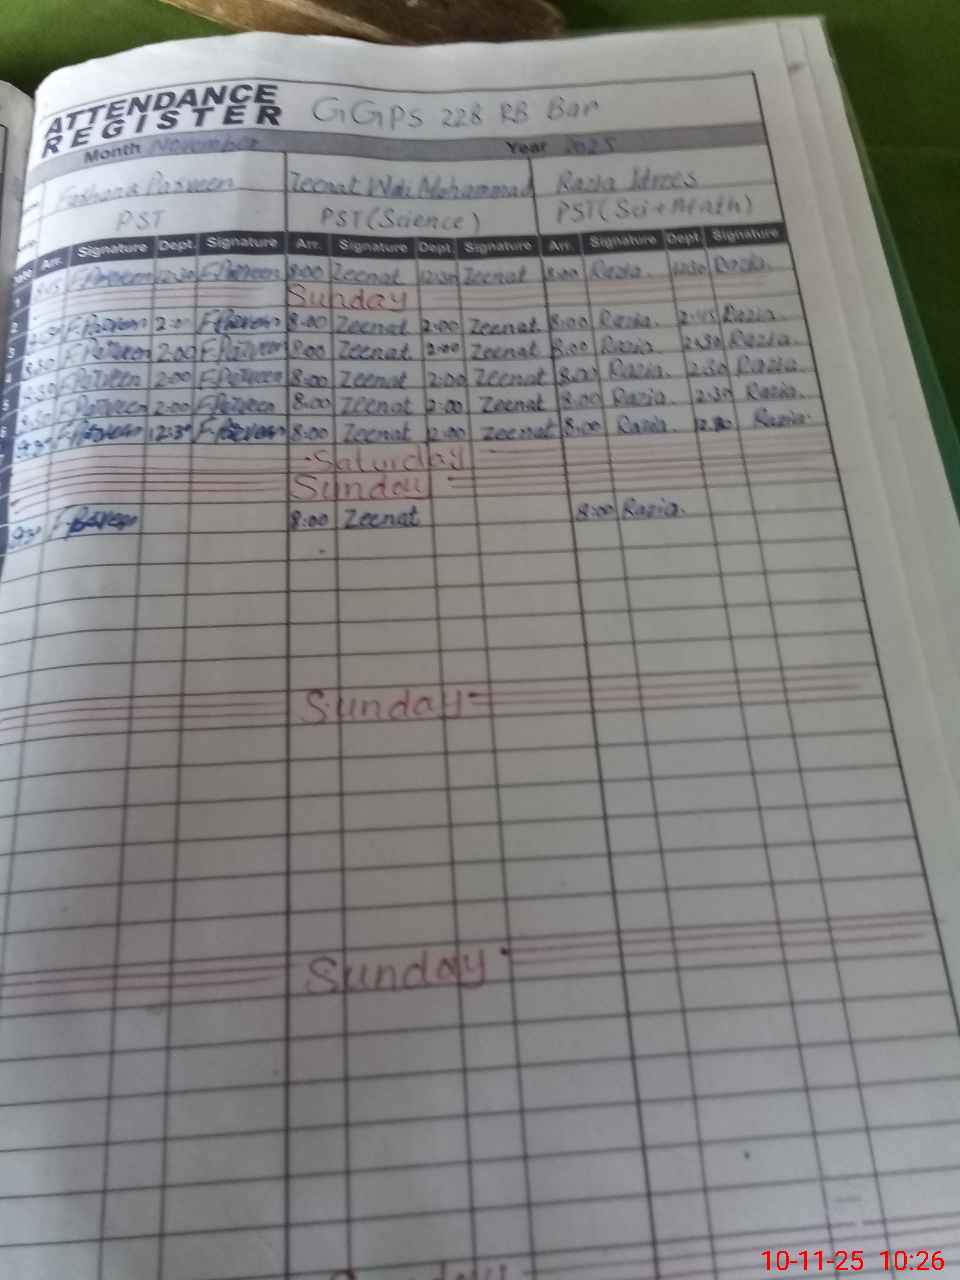 ATTENDANCE REGISTER GGPS 228 RB Bar
Month November Year 2025
Farhana Parveen Zeenat Wali Mohammad Razia Idrees
PST PST (Science) PST (Sci + Math)
Arr. Signature Dept. Signature Arr. Signature Dept. Signature Arr. Signature Dept. Signature
F.Parveen 12:30 F.Parveen 8:00 Zeenat 12:30 Zeenat 8:00 Razia. 12:30 Razia.
Sunday
F.Parveen 2:00 F.Parveen 8:00 Zeenat 2:00 Zeenat 8:00 Razia. 2:45 Razia.
F.Parveen 2:00 F.Parveen 8:00 Zeenat 2:00 Zeenat 8:00 Razia. 2:30 Razia.
8:30 F.Parveen 2:00 F.Parveen 8:00 Zeenat 2:00 Zeenat 8:00 Razia. 2:30 Razia.
8:30 F.Parveen 2:00 F.Parveen 8:00 Zeenat 2:00 Zeenat 8:00 Razia. 2:30 Razia.
F.Parveen 12:30 F.Parveen 8:00 Zeenat 12:00 Zeenat 8:00 Razia. Razia.
Saturday
Sunday
F.Parveen 8:00 Zeenat 8:00 Razia.
Sunday
Sunday
10-11-25 10:26